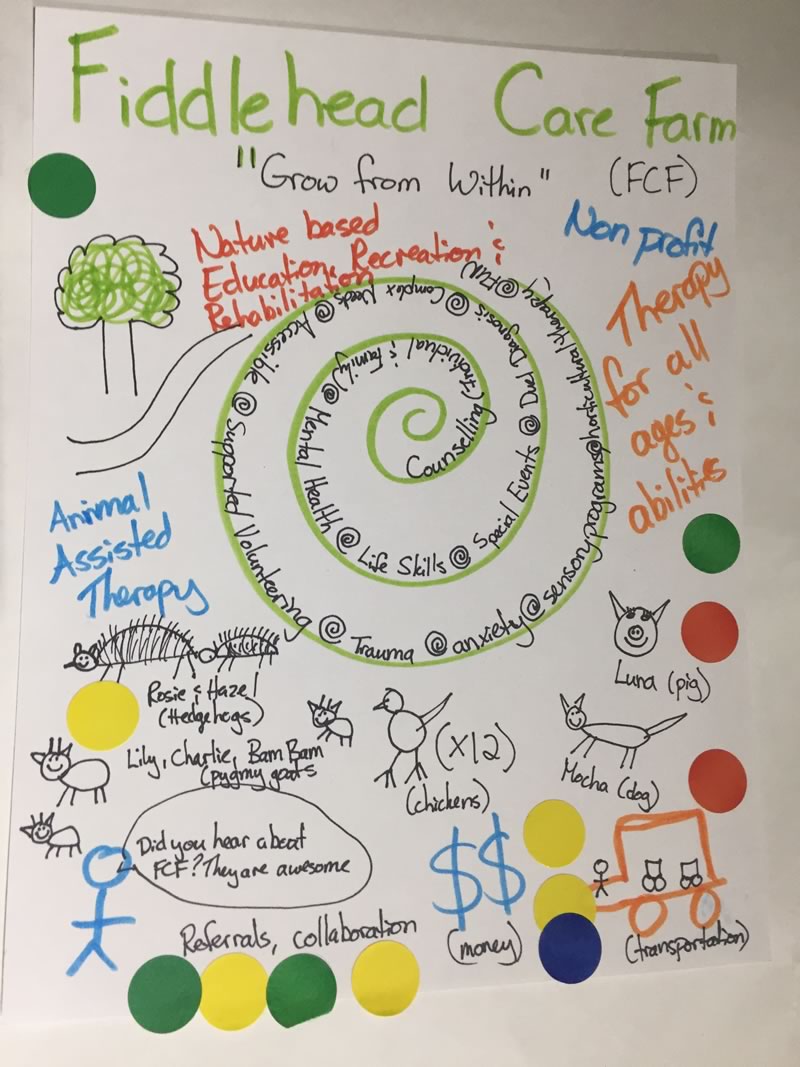 Fiddlehead Care Farm
"Grow from Within" (FCF)
Non profit
Nature based
Education, Recreation &
Rehabilitation
Therapy
for all
ages &
abilities
Counselling (Individual & family) @ Mental Health @ Life Skills @ Special Events @ Duel Diagnosis @ Complex Needs @ Accessible @ Supported Volunteering @ Trauma @ anxiety @ sensory programs @ horticultural therapy @ FUN
Animal
Assisted
Therapy
Luna (pig)
Rosie & Hazel
(Hedgehogs)
Lily, Charlie, Bam Bam
(pygmy goats
(x12)
(chickens)
Mocha (dog)
Did you hear abeat
FCF? They are awesome
$$
(money)
(transportation)
Referrals, collaboration